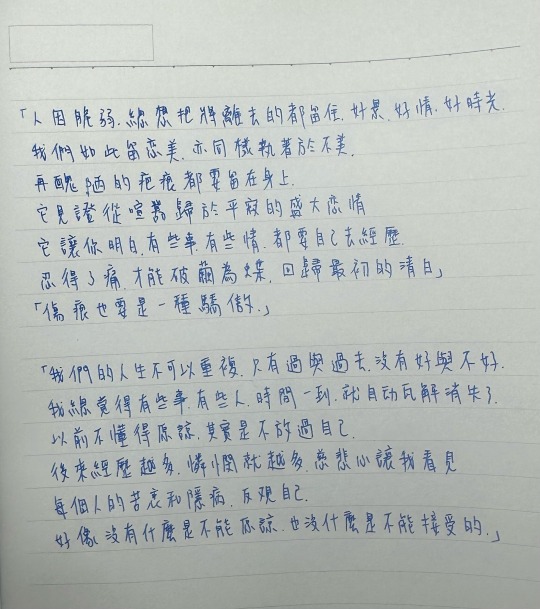 「人因脆弱.總想把將離去的都留住.好景.好情.好時光.
我們如此留戀美.亦同樣執著於不美.
再醜陋的疤痕都要留在身上.
它見證從喧囂歸於平寂的盛大戀情
它讓你明白.有些事.有些情.都要自己去經歷.
忍得了痛.才能破繭為蝶.回歸最初的清白」
「傷痕也要是一種驕傲.」
「我們的人生不可以重複.只有過與過去.沒有好與不好.
我總覺得有些事.有些人.時間一到.就自动瓦解消失了.
以前不懂得原諒.其實是不放過自己.
後來經歷越多.憐憫就越多.慈悲心讓我看見
每個人的苦衷和隱病.反观自己.
好像沒有什麼是不能原諒.也沒什麼是不能接受的.」